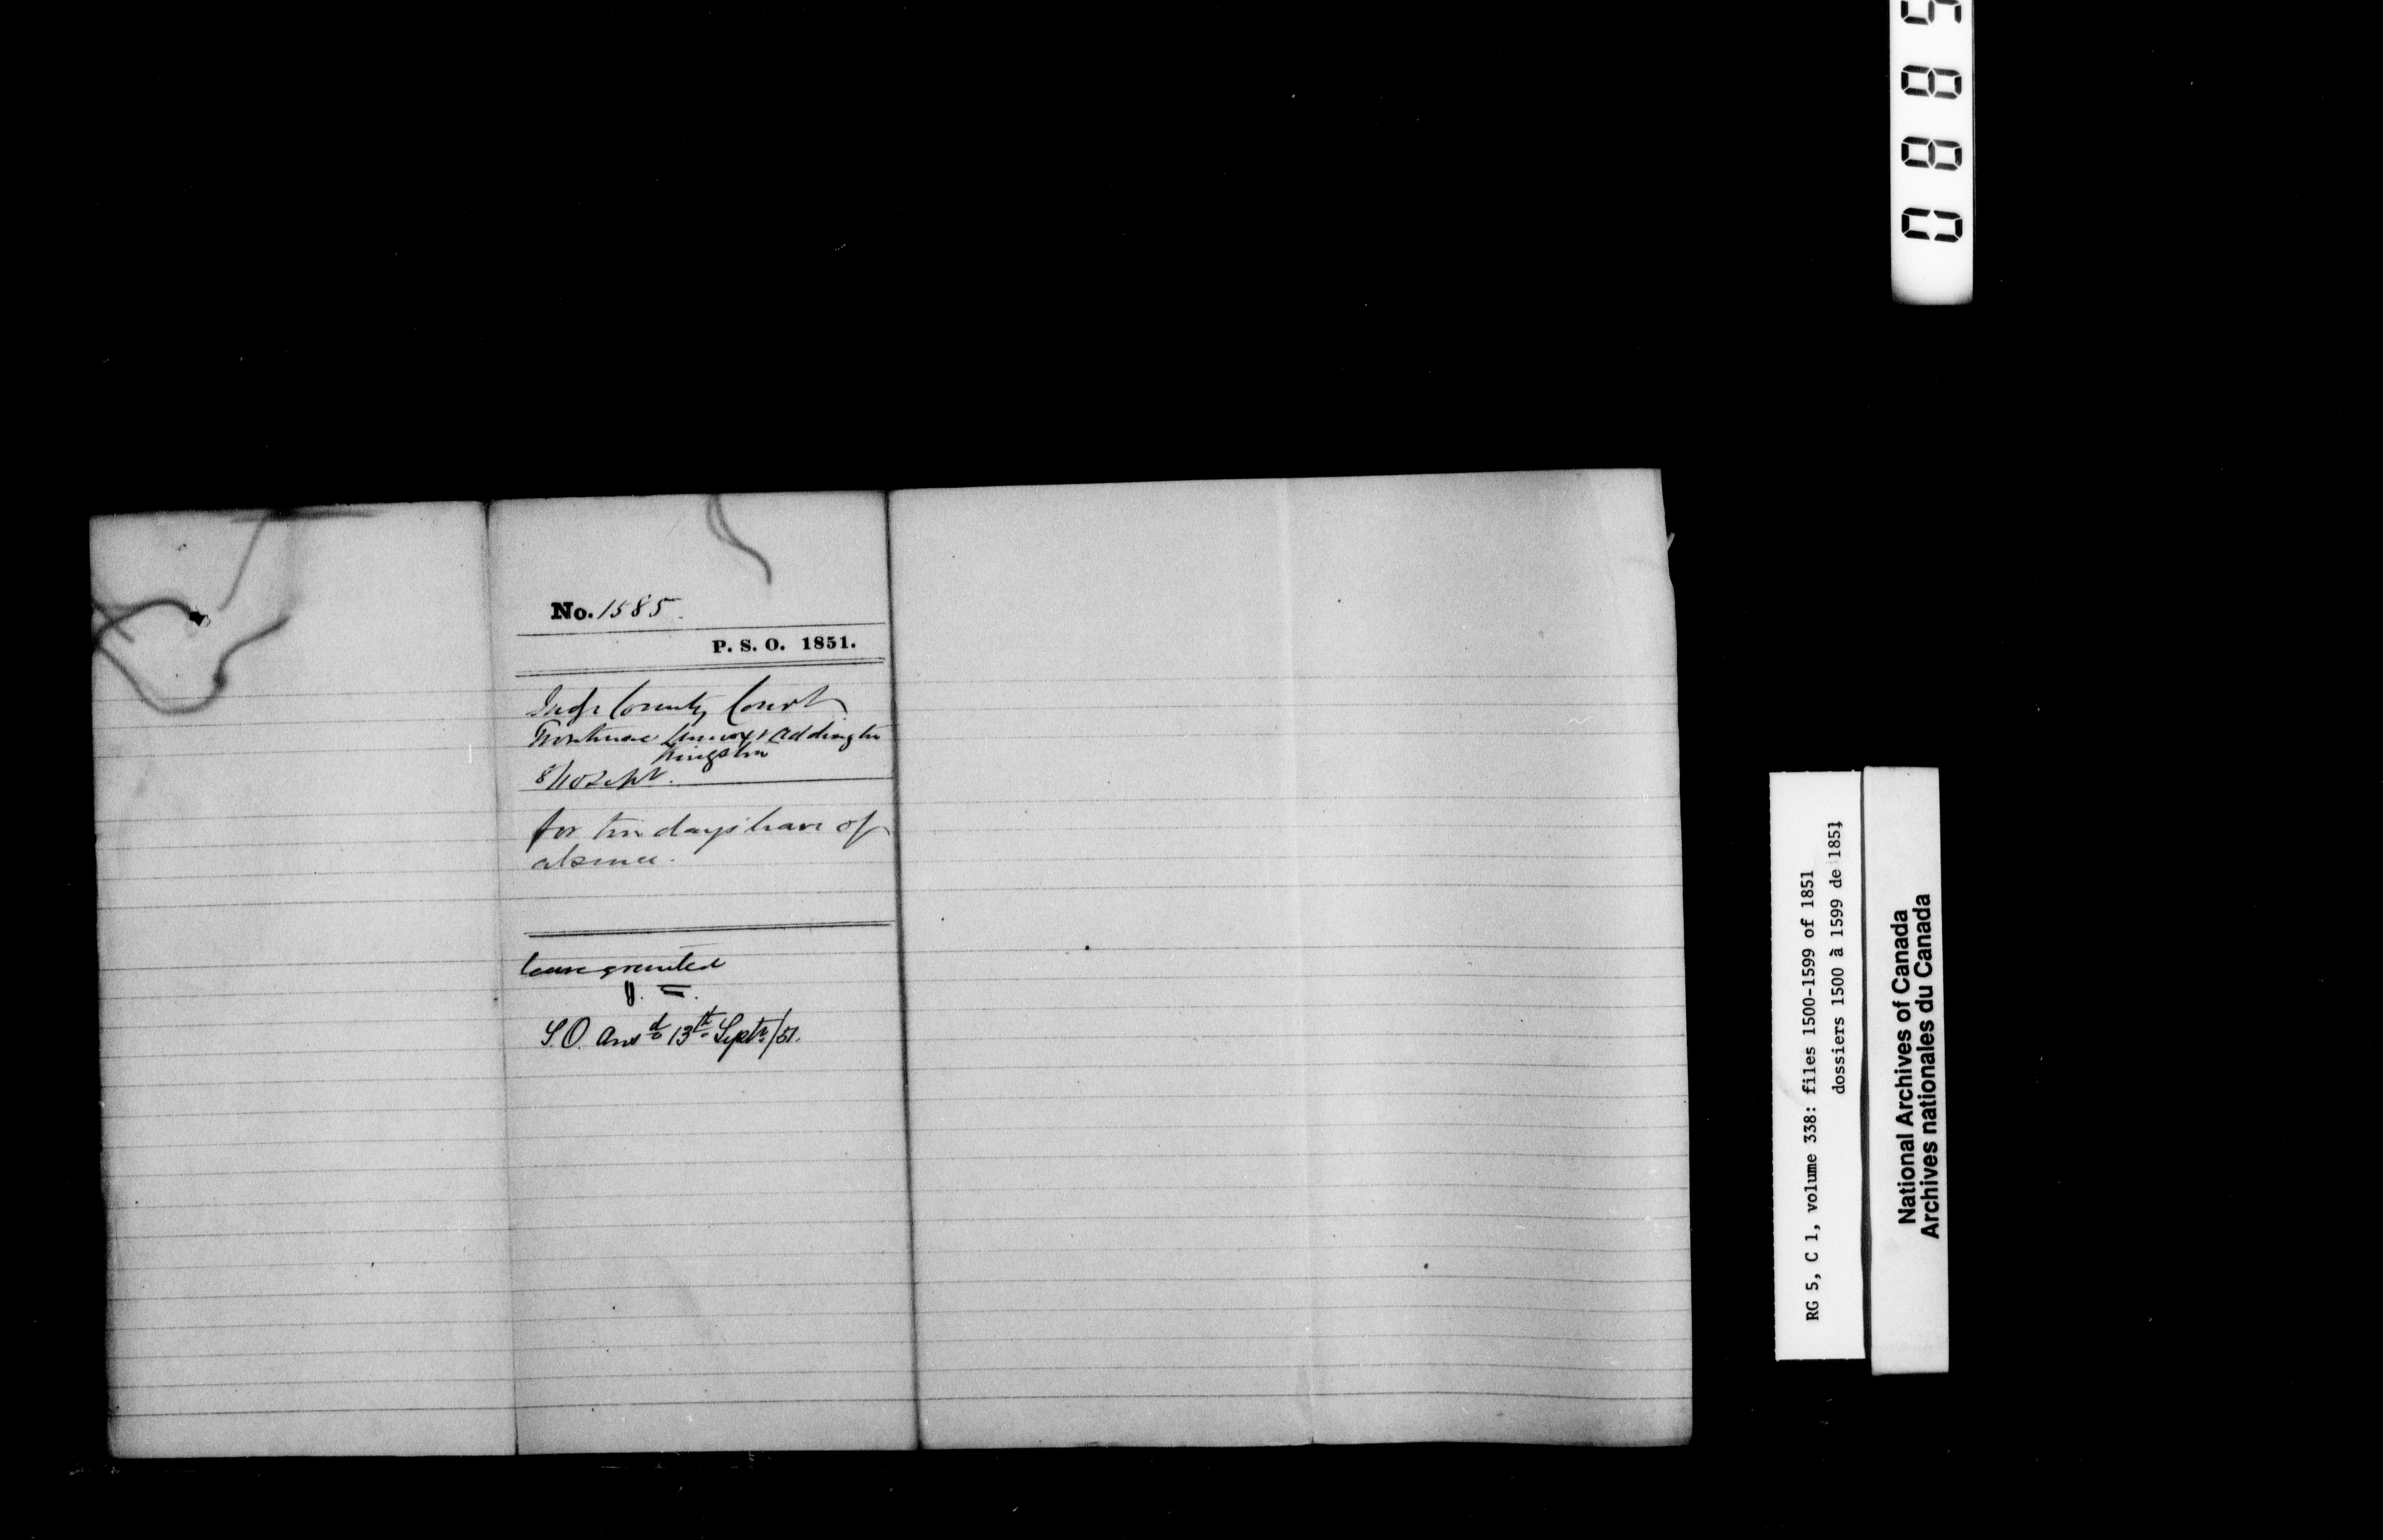 No. 1585.
P. S. O. 1851.
Judge County Court
Frontenac Lennox & Addington
Kingston
8/10 Sept.
for ten days leave of
absence.
leave granted
S.O. Ansd 13th Septr/51.
0885
RG 5, C 1, volume 338: files 1500-1599 of 1851
dossiers 1500 à 1599 de 1851
National Archives of Canada
Archives nationales du Canada